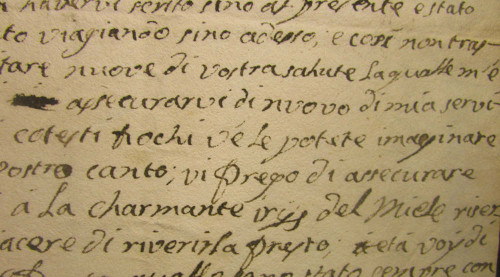 havervi scrito sino al presente e stato
to viagiando sino adesso; e così non tras
tare nuove di vostra salute laqualle m'è
assecurarvi di nuovo di mia servi
cotesti fiochi vé le potete imaginare
vostro canto; vi prego di assecurare
á la charmante irys del Miele river
iacere di riverirla presto, e tá voÿ di
stato sempre con